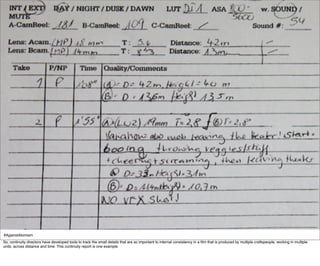 INT / EXT DAY / NIGHT / DUSK / DAWN LUT DIA ASA 80- w. SOUND /
MUTE 5600 54
A-CamReel: 181 B-CamReel: 109 C-CamReel: Sound #:
Lens: Acam. (MP) 18 mm T: 5.6 Distance: 42m
Lens: Bcam. (MP) 14mm T: Distance: 13m
Take P/NP Time Quality/Comments
1 P 1'08" (A)- D= 42m, Height = 60 m
(B)- D= 13.6m Height 13.5m
2 P 1'55" T=2.8 T=2.8
leaving the theater! Start=
booing, throwing veggies/stuff
+ cheering + screaming, then leaving theater
(A) D= Height= 31m
(B)- D= Height= 10,7m
NO VFX Shot!
#Agansblomsm
So, continuity directors have developed tools to track the small details that are so important to internal consistency in a film that is produced by multiple craftspeople, working in multiple
units, across distance and time. This continuity report is one example.